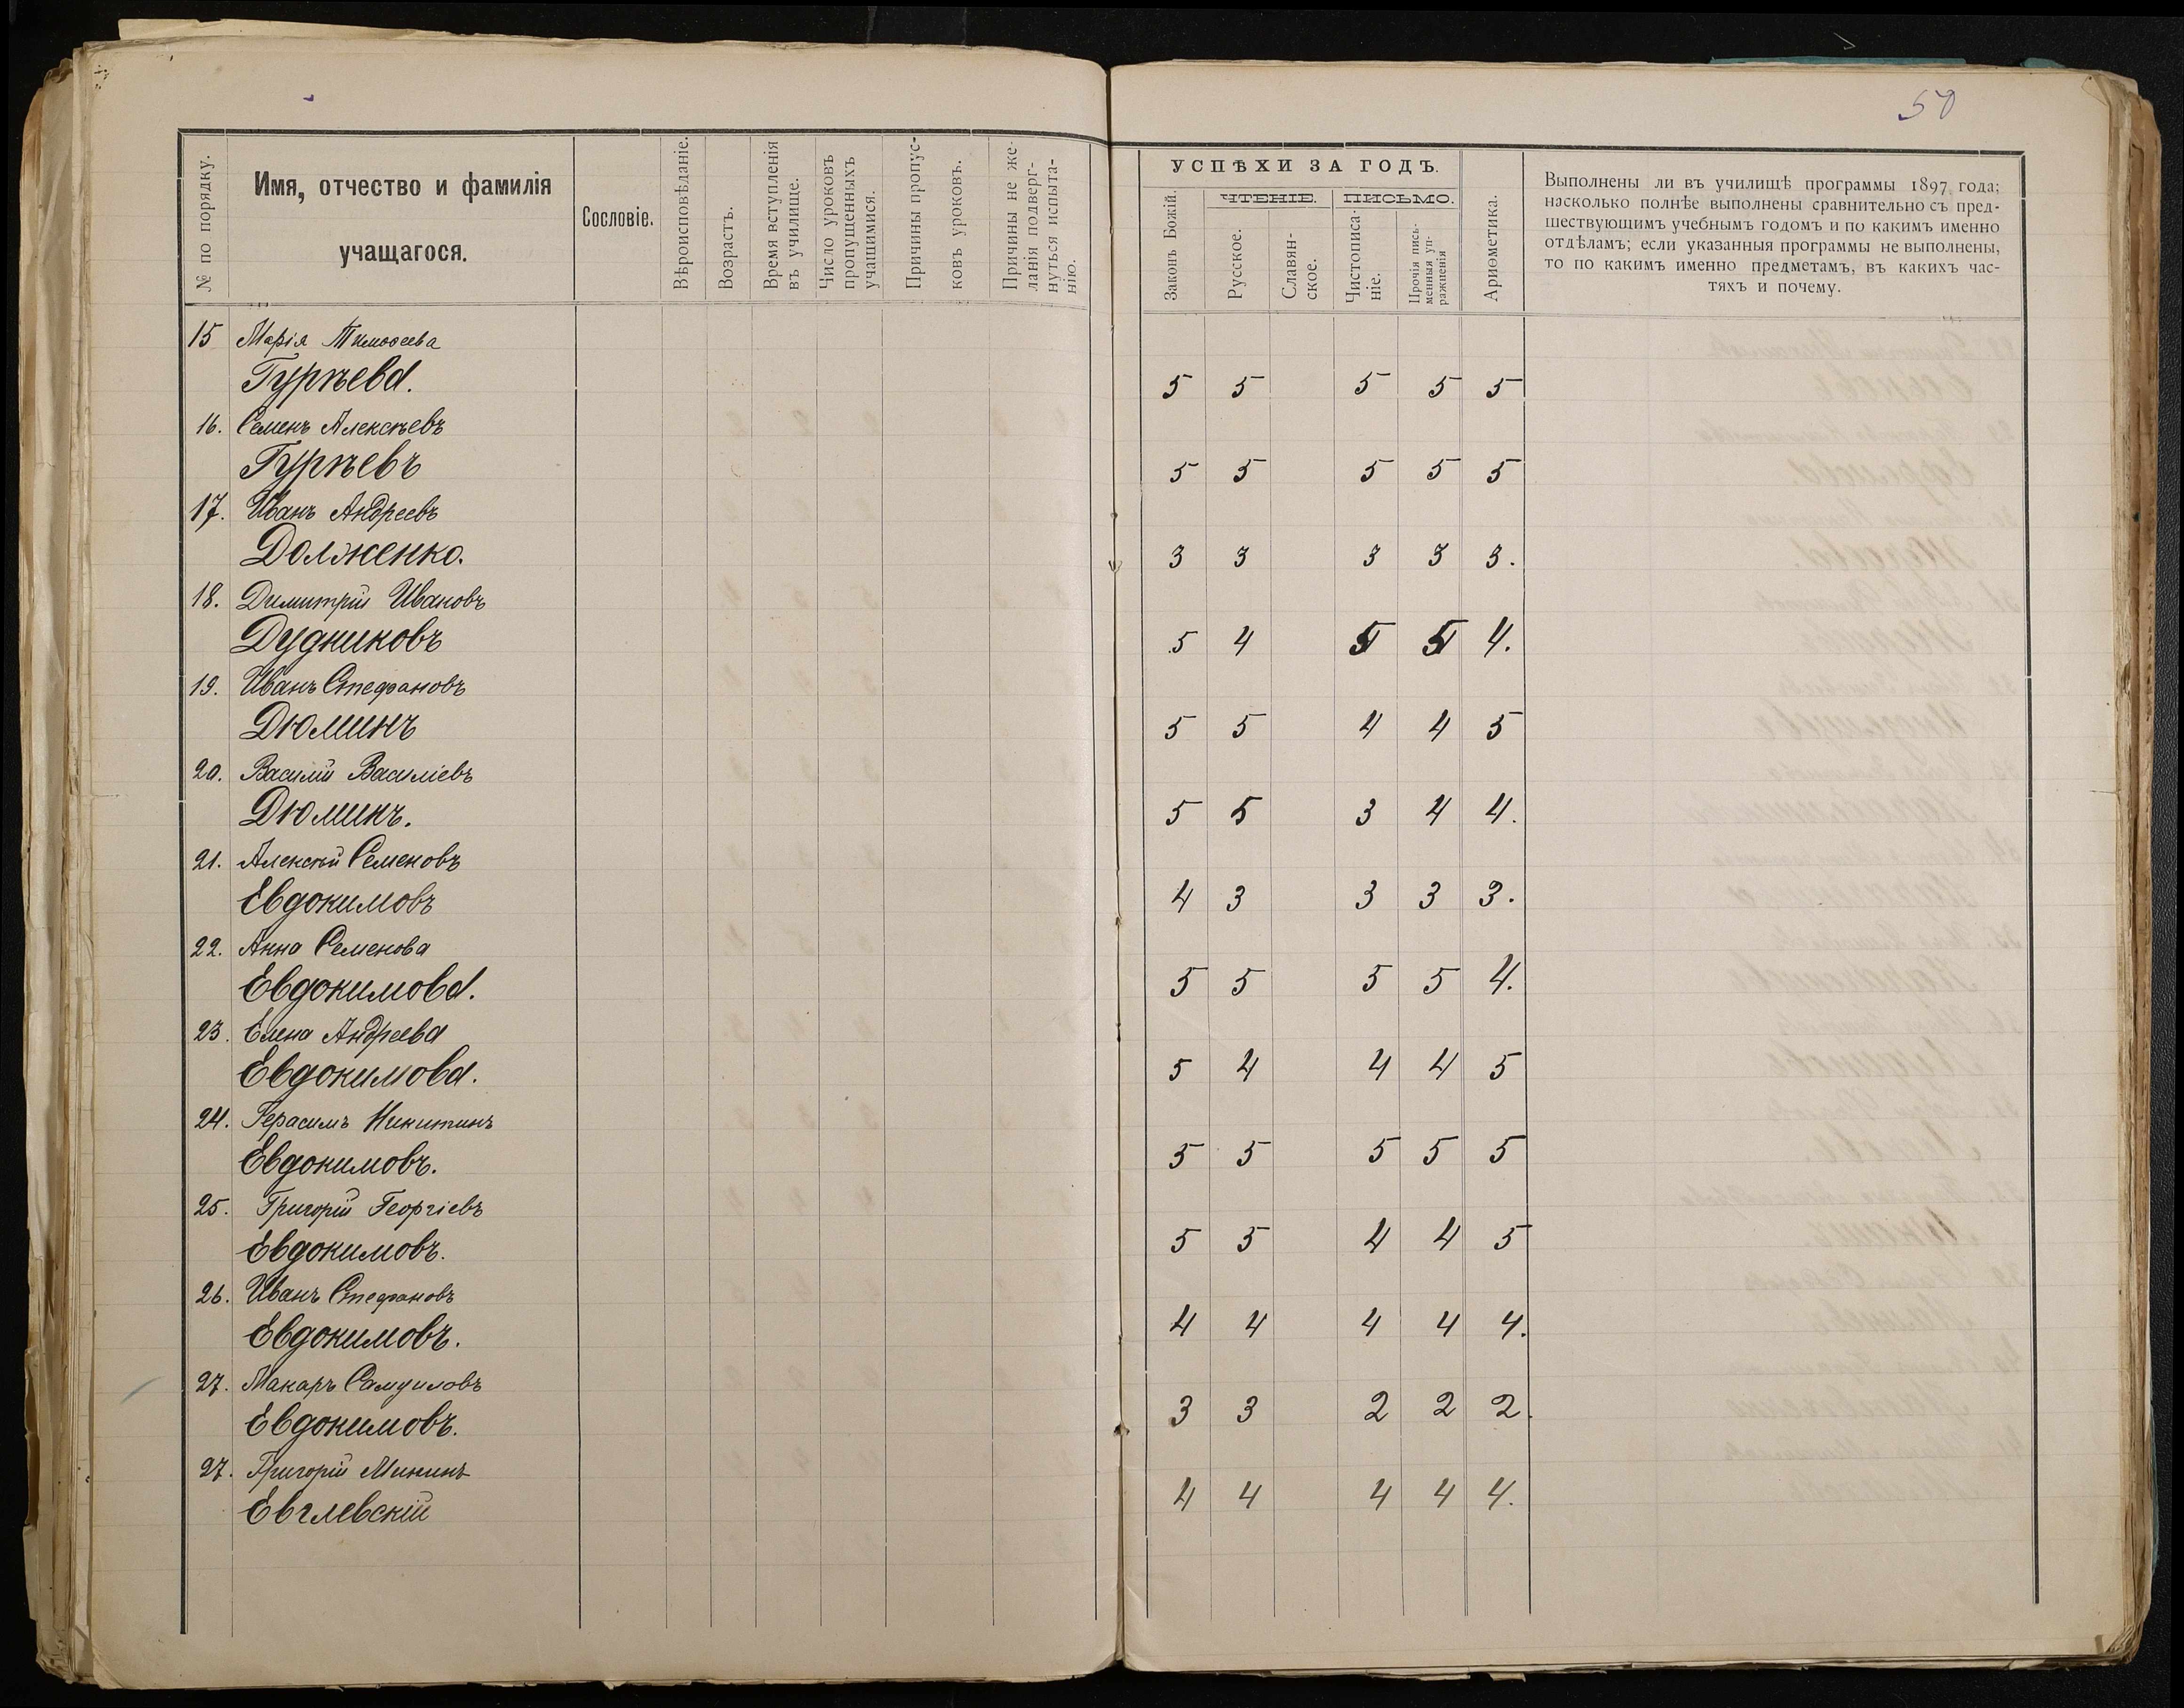 50
№ по порядку.
Имя, отчество и фамилія
учащагося.
Сословіе.
Вѣроисповѣданіе.
Возрастъ.
Время вступленія
въ училище.
Число уроковъ
пропущенныхъ
учащимися.
Причины пропус-
ковъ уроковъ.
Причины не же-
ланія подверг-
нуться испыта-
нію.
УСПѢХИ ЗА ГОДЪ.
Законъ Божій.
ЧТЕНІЕ.
Русское.
Славян-
ское.
ПИСЬМО.
Чистописа-
ніе.
Прочія пись-
менныя уп-
ражненія
Ариѳметика.
Выполнены ли въ училищѣ программы 1897 года;
насколько полнѣе выполнены сравнительно съ пред-
шествующимъ учебнымъ годомъ и по какимъ именно
отдѣламъ; если указанныя программы не выполнены,
то по какимъ именно предметамъ, въ какихъ час-
тяхъ и почему.
15 Марія Тимоѳеева
Гурѣева. 5 5 5 5 5
16. Семенъ Алексѣевъ
Гурѣевъ 5 5 5 5 5
17. Иванъ Андреевъ
Долженко. 3 3 3 3 3.
18. Димитрій Ивановъ
Дудниковъ 5 4 5 5 4.
19. Иванъ Стефановъ
Дюминъ 5 5 4 4 5
20. Василій Василіевъ
Дюминъ. 5 5 3 4 4.
21. Алексѣй Семеновъ
Евдокимовъ 4 3 3 3 3.
22. Анна Семенова
Евдокимова. 5 5 5 5 4.
23. Елена Андреева
Евдокимова. 5 4 4 4 5
24. Герасимъ Никитинъ
Евдокимовъ. 5 5 5 5 5
25. Григорій Георгіевъ
Евдокимовъ. 5 5 4 4 5
26. Иванъ Стефановъ
Евдокимовъ. 4 4 4 4 4.
27. Макаръ Самуиловъ
Евдокимовъ. 3 3 2 2 2.
27. Григорій Мининъ
Евглевскій 4 4 4 4 4.